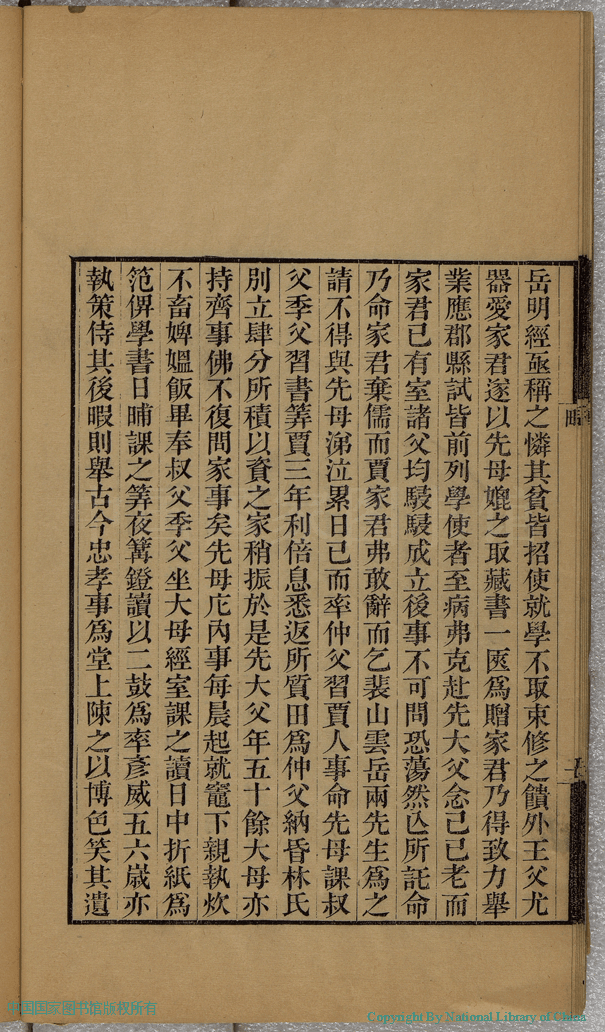 岳明經亟稱之憐其貧皆招使就學不取束修之饋外王父尤
器愛家君遂以先母媲之取藏書一匧爲贈家君乃得致力舉
業應郡縣試皆前列學使者至病弗克赴先大父念己已老而
家君已有室諸父均駸駸成立後事不可問恐蕩然亾所託命
乃命家君棄儒而賈家君弗敢辭而乞裴山雲岳兩先生爲之
請不得與先母涕泣累日已而率仲父習賈人事命先母課叔
父季父習書筭賈三年利倍息悉返所質田爲仲父納昏林氏
別立肆分所積以資之家稍振於是先大父年五十餘大母亦
持齊事佛不復問家事矣先母庀內事每晨起就竈下親執炊
不畜婢媼飯畢奉叔父季父坐大母經室課之讀日中折紙爲
笵俾學書日晡課之筭夜篝鐙讀以二鼓爲率彥威五六歲亦
執策侍其後暇則舉古今忠孝事爲堂上陳之以博色笑其遺
中国国家图书馆版权所有
Copyright By National Library of China